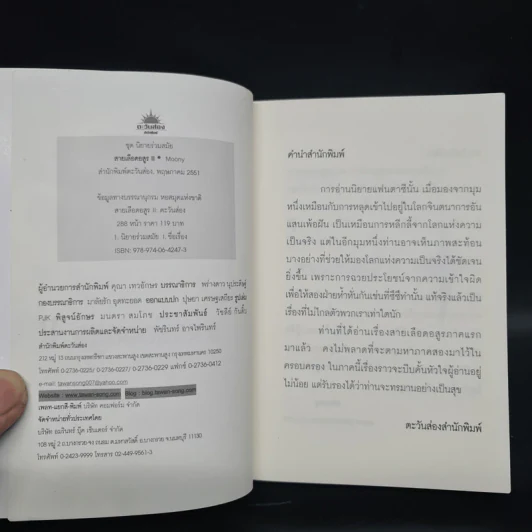 ตะวันส่อง
ชุด นิยายร่วมสมัย
สายเลือดอสูร II * Moony
สำนักพิมพ์ตะวันส่อง, พฤษภาคม 2551
ข้อมูลทางบรรณานุกรม หอสมุดแห่งชาติ
สายเลือดอสูร II. ตะวันส่อง
288 หน้า ราคา 119 บาท
1. นิยายร่วมสมัย I. ชื่อเรื่อง
ISBN: 978-974-06-4247-3
ผู้อำนวยการสำนักพิมพ์ คุณา เทวอักษร บรรณาธิการ
กองบรรณาธิการ มาลัยรัก อุตรยอดล ออกแบบปก รูปเล่ม
PJK พิสูจน์อักษร มนตรา สมโภช ประชาสัมพันธ์ วิชลีย์ กันติ๊บ
ประสานงานการผลิตและจัดจำหน่าย พัชรินทร์ อาจไพรินทร์
สำนักพิมพ์ตะวันส่อง
โทรศัพท์ 0-2736-0225/ 0-2736-0227/ 0-2736-0229 แฟกซ์ 0-2736-0412
e-mail: tawansong007@yahoo.com
Website : www.tawan-song.com Blog : blog.tawan-song.com
เพลท-แยกสี-พิมพ์ บริษัท คอมฟอร์ม จำกัด
จัดจำหน่ายทั่วประเทศโดย
บริษัท อมรินทร์ บุ๊ค เซ็นเตอร์ จำกัด
โทรศัพท์ 0-2423-9999 โทรสาร 02-449-9561-3
คำนำสำนักพิมพ์
การอ่านนิยายแฟนตาซีนั้น เมื่อมองจากมุม
หนึ่งเหมือนกับการหลุดเข้าไปอยู่ในโลกจินตนาการอัน
แสนเพ้อฝัน เป็นเหมือนการหลีกลี้จากโลกแห่งความ
เป็นจริง แต่ในอีกมุมหนึ่งท่านอาจเห็นภาพสะท้อน
บางอย่างที่ช่วยให้มองโลกแห่งความเป็นจริงได้ชัดเจน
ยิ่งขึ้น เพราะการฉวยประโยชน์จากความเข้าใจผิด
เพื่อให้สองฝ่ายห้ำหั่นกันเช่นที่ซีซีทำนั้น แท้จริงแล้วเป็น
เรื่องที่ไม่ไกลตัวพวกเราเท่าใดนัก
ท่านที่ได้อ่านเรื่องสายเลือดอสูรภาคแรก
มาแล้ว คงไม่พลาดที่จะตามหาภาคสองมาไว้ใน
ครอบครอง ในภาคนี้เรื่องราวจะบีบคั้นหัวใจผู้อ่านอยู่
ไม่น้อย แต่รับรองได้ว่าท่านจะทรมานอย่างเป็นสุข
ตะวันส่องสำนักพิมพ์